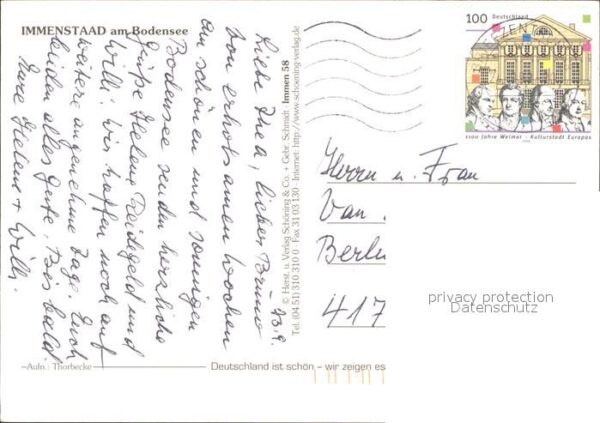 IMMENSTAAD am Bodensee
Liebe Inea, lieber Bruno
Von erholsamen Wochen
am schönen und sonnigen
Bodensee senden herzliche
Grüße Helene und
Willi. Wir hoffen noch auf
weitere angenehme Tage. Euch
beiden alles Gute. Bis bald
Eure Helene + Willi.
© Herst. u. Verlag Schöning & Co. + Gebr. Schmidt Immen 58
Tel. (04 51) 310 310 0 · Fax 31 03 130 · Internet: http://www.schoening-verlag.de
100 Deutschland
1100 Jahre Weimar - Kulturstadt Europas
Herrn u. Frau
Van
Berlin
417
privacy protection
Datenschutz
Aufn.: Thorbecke
Deutschland ist schön – wir zeigen es